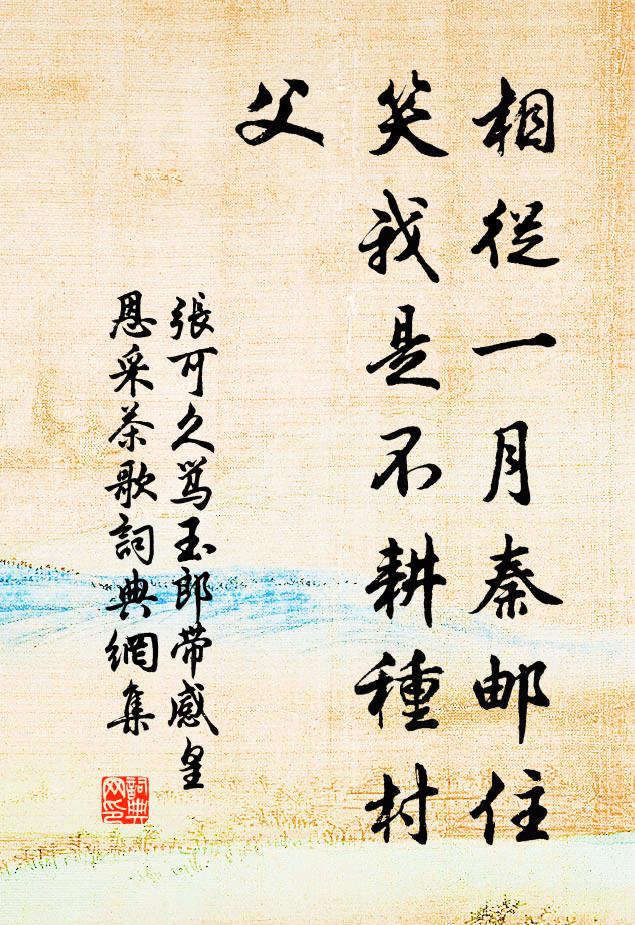 相從一月秦邮住
笑我是不耕種村
父
張可久骂玉郎带感皇
恩采茶歌詞典網集
詞典
网印